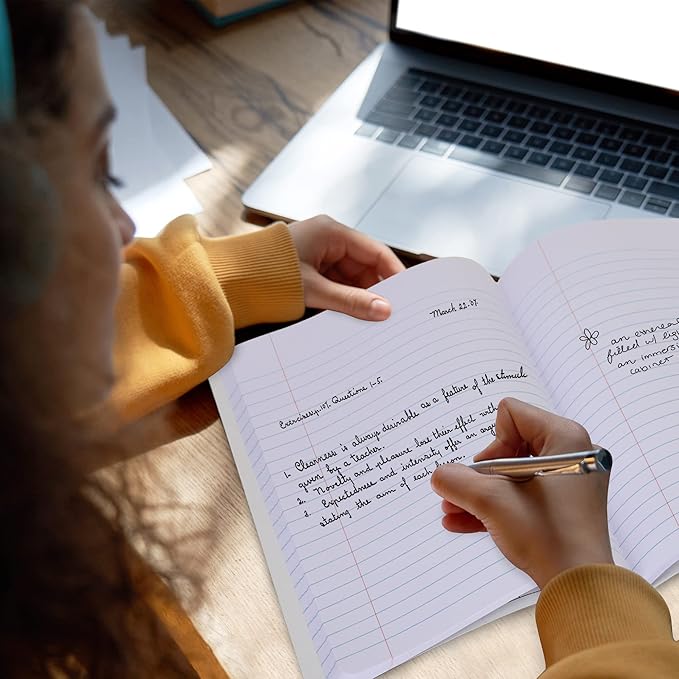 March 22.07.
Exercises p.157, Questions 1-5.
1. Clearness is always desirable as a feature of the stimuli
given by a teacher.
2. Novelty and pleasure lose their effect with
3. Expectedness and intensity offer an
stating the aim of each lesson.
an ethereal
filled w/
an immers
cabinet